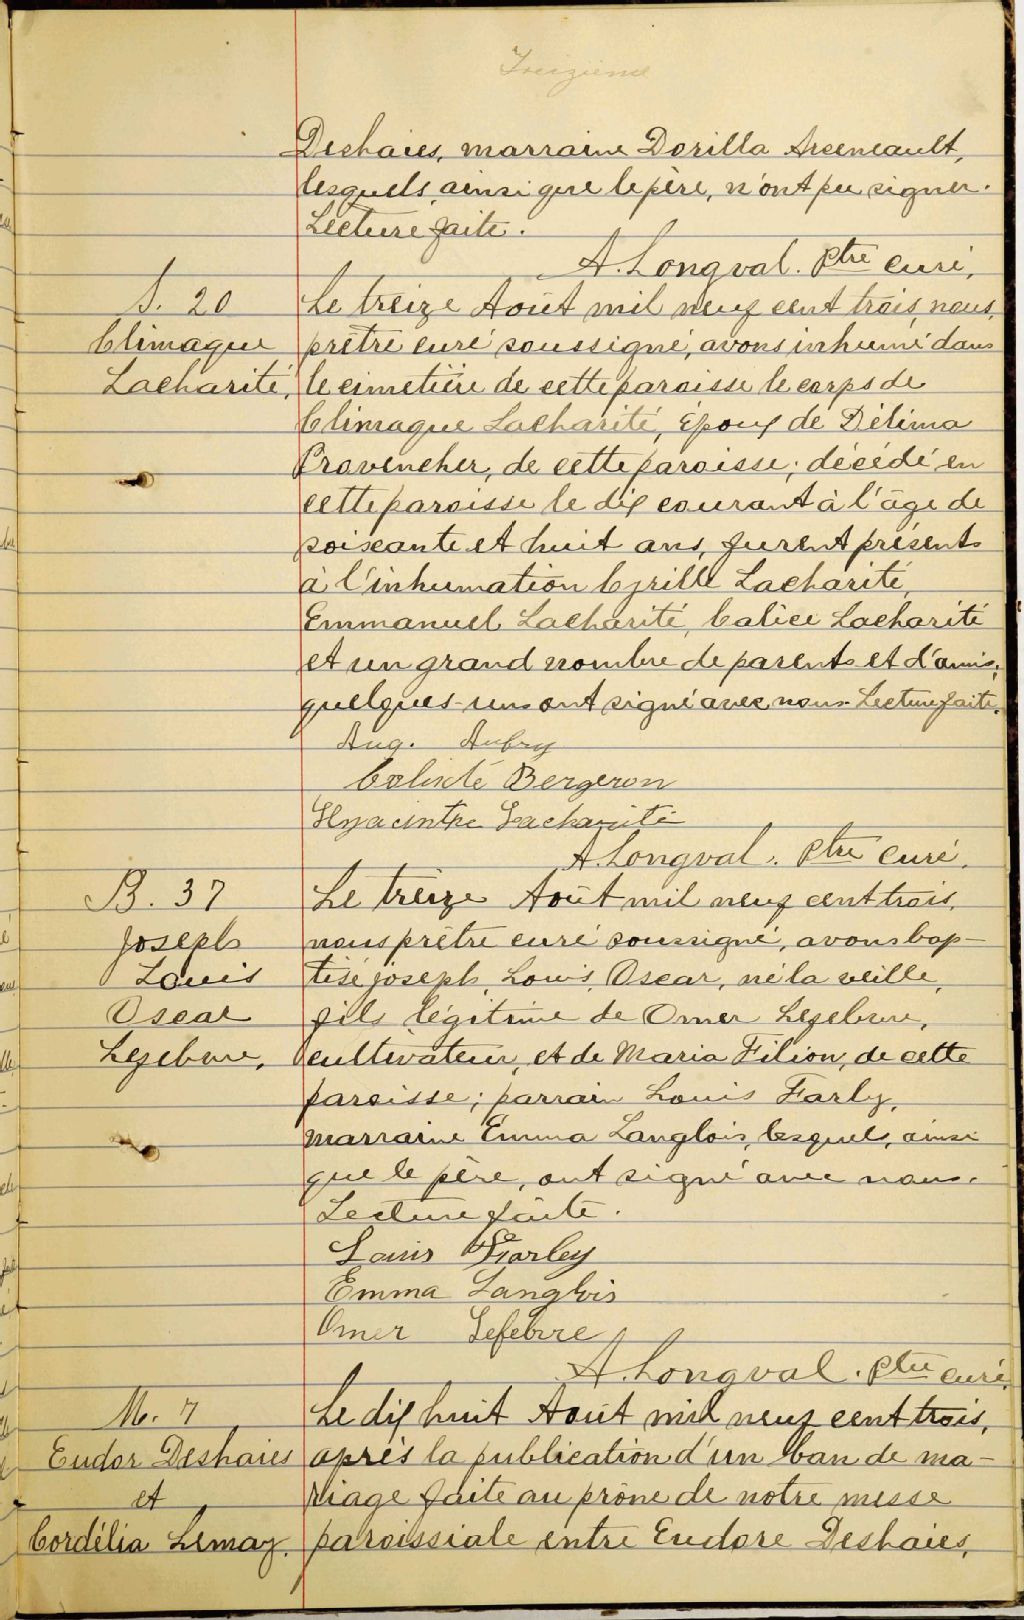 Treizième
Deshaies, marraine Dorilla Arseneault,
lesquels, ainsi que le père, n'ont pu signer.
Lecture faite.
A. Longval. Ptre curé,
S. 20
Climaque
Lacharité,
Le treize Août mil neuf cent trois, nous,
prêtre curé soussigné, avons inhumé dans
le cimetière de cette paroisse le corps de
Climaque Lacharité, Époux de Délima
Provencher, de cette paroisse; décédé en
cette paroisse le dix courant à l'âge de
soixante et huit ans, furent présents
à l'inhumation Cyrille Lacharité,
Emmanuel Lacharité, Calice Lacharité
et un grand nombre de parents et d'amis;
quelques-uns ont signé avec nous. Lecture faite.
Aug. Aubry
Calixte Bergeron
Hyacinthe Lacharité
A. Longval. Ptre curé.
B. 37
Joseph
Louis
Oscar
Lefebvre,
Le treize Août mil neuf cent trois,
nous prêtre curé soussigné, avons bap-
tisé joseph, Louis, Oscar, né la veille,
fils légitime de Omer Lefebvre,
cultivateur, et de Maria Filion, de cette
paroisse; parrain Louis Farly,
marraine Emma Langlois, lesquels, ainsi
que le père, ont signé avec nous.
Lecture faite.
Louis Farley
Emma Langlois
Omer Lefebvre
A. Longval. Ptre curé.
M. 7
Eudor Deshaies
et
Cordélia Lemay.
Le dix huit Août mil neuf cent trois,
après la publication d'un ban de ma-
riage faite au prône de notre messe
paroissiale entre Eudore Deshaies,